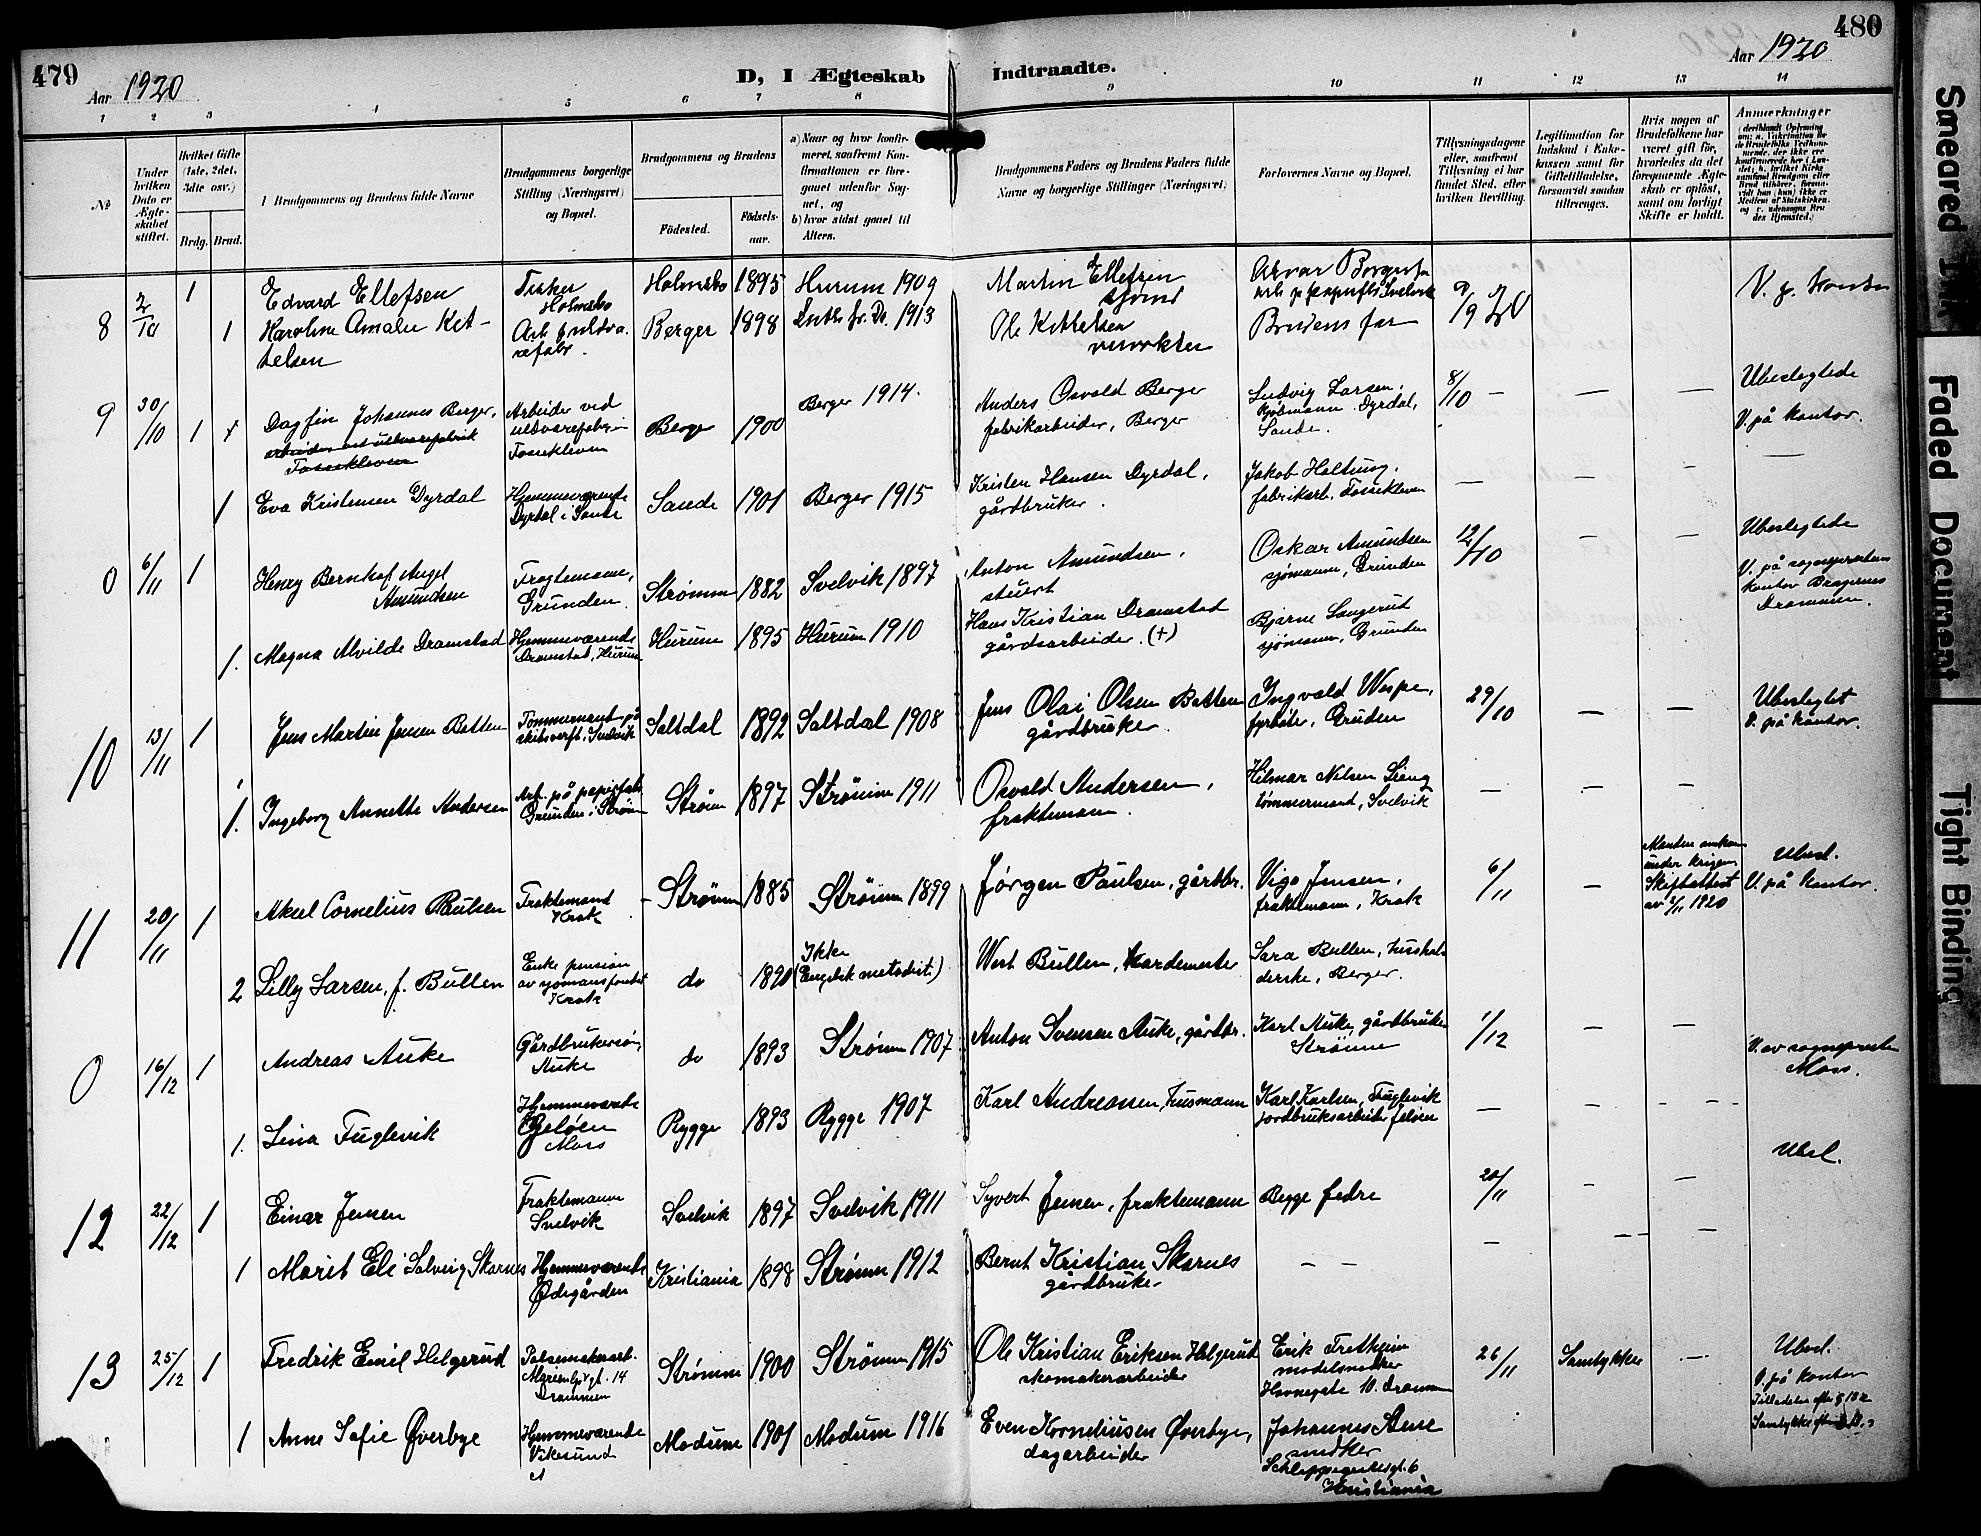 479
Aar 1920
D, I Ægteskab
Indtraadte.
480
Aar 1920
1 2 3 4 5 6 7 8 9 10 11 12 13 14
No
Under
hvilken
Dato er
Ægte-
skabet
stiftet.
Hvilket Gifte
(1ste, 2det,
3dte osv.)
Brdg. Brud.
Brudgommens og Brudens fulde Navne
Brudgommens borgerlige
Stilling (Næringsvei)
og Bopæl.
Brudgommens og Brudens
Fødested.
Fødsels-
aar.
a) Naar og hvor konfir-
meret, saafremt Kon-
firmationen er fore-
gaaet udenfor Sog-
net, og
b) hvor sidst gaaet til
Alters.
Brudgommens Faders og Brudens Faders fulde
Navne og borgerlige Stillinger (Næringsvei)
Forlovernes Navne og Bopæl.
Tillysningsdagene
eller, saafremt
Tillysning ei har
fundet Sted, efter
hvilken Bevilling.
Legitimation for
Indskud i Enke-
kassen samt for
Giftetilladelse,
forsaavidt saadan
tiltrænges.
Hvis nogen af
Brudefolkene har
været gift før,
hvorledes da det
foregaaende Ægte-
skab er opløst,
samt om lovligt
Skifte er holdt.
Anmerkninger
8 2/10 1 Edvard Ellefsen Fisker Holmsbo Holmsbo 1895 Hurum 1909 Martin Ellefsen 9/9 20
1 Karoline Amalie Kit-
telsen Berger 1898 1913 Ole Kittelsen Brudens far
9 30/10 1 Dagfin Johannes Berger, Arbeider ved
uldvarefabrik
Fossekleven Berger 1900 Berger 1914. Anders Osvald Berger
fabrikarbeider, Berger Ludvig Larsen,
Kjøbmann. Dyrdal,
Sande. 8/10 — — — Ubeslegtede
V. på kontor.
arbeider ved uldvarefabrik
Fossekleven
1 Eva Kristensen Dyrdal Hjemmeværende
Dyrdal i Sande Sande 1901 Berger 1915 Kristen Hansen Dyrdal,
gårdbruker. Jakob Holtung,
fabrikarb. Fossekleven — — — —
0 6/11 1 Henry Bernhof Angel
Amundsen Fragtemann,
Grunden. Strømm 1882 Svelvik 1897 Anton Amundsen,
stuert Oskar Amundsen
sjømann, Grunden 12/10 — — Ubeslegtede
V. på sogneprestens
kontor Bragernes
Drammen.
1. Magna Alvilde Dramstad Hjemmeværende
Dramstad, Hurum Hurum 1895 Hurum 1910 Hans Kristian Dramstad
gårdsarbeider. (+) Bjarne Langerud
sjømann, Grunden
10 13/11 1 Jens Martin Jensen Botten Tømmermand på
skibsverft, Svelvik Saltdal 1892 Saltdal 1908 Jens Olai Olsen Botten
gårdbruker. Ingvald Wespe,
fyrbøter, Gruden 29/10 — — Ubeslegtet
V. på kontor.
1. Ingeborg Annette Andersen Arb. på papirfabr.
Grunden i Strøm Strøm 1897 Strømm 1911 Osvald Andersen,
fraktemann. Hilmar Nilsen Lieng
tømmermand, Svelvik — — —
11 20/11 1 Aksel Cornelius Paulsen Fraktemand
Krok Strømm 1885 Strømm 1899 Jørgen Paulsen, gårdbr. Vigo Jensen,
fraktemann, Krok 6/11 — Manden omkom
under krigen
Skifteattest
av 2/11 1920 Ubesl.
V. på kontor.
2 Lilly Larsen, f. Bullen Enke pension
av sjømansfondet
Krok do 1890 Ikke
(Engelsk metodist.) West Bullen, Kardemester Sara Bullen, hushol-
derske, Berger.
0 16/12 1 Andreas Auke Gårdbrukersøn,
Auke do 1893 Strømm 1907 Anton Svensen Auke, gårdbr. Karl Auke, gårdbruker
Strømm 1/12 — — V. av sogneprest
Moss.
1. Lina Fuglevik Hjemmeværende
Jeløen
Moss Rygge 1893 Rygge 1907 Karl Andreassen, husmann Karl Karlsen, Fuglevik
jordbruksarbeider Jeløen — — — —
Ubsl.
12 22/12 1 Einar Jensen Fraktemann
Svelvik Svelvik 1897 Svelvik 1911 Syvert Jensen, fraktemann Begge fedre 20/11 — —
1 Marit Eli Solveig Skarnes Hjemmeværende
Ødegården Kristiania 1898 Strømm 1912 Bernt Kristian Skarnes
gårdbruker — — — — —
13 25/12 1 Fredrik Emil Helgerud Pølsemakerarb.
14
Drammen Strømm 1900 Strømm 1915 Ole Kristian Eriksen Helgerud
skomakerarbeider Erik Fretheim
modelsnedker
Havnegate 10. Drammen 26/11 Samtykke — Ubesl.
V. på kontor
1 Anne Sofie Øverbye Hjemmeværende
Vikesund Modum 1901 Modum 1916 Even Korneliusen Øverbye,
dagarbeider Johannes
snedker
Schleppegrellsgt. 6
Kristiania
Smeared Ink
Faded Document
Tight Binding